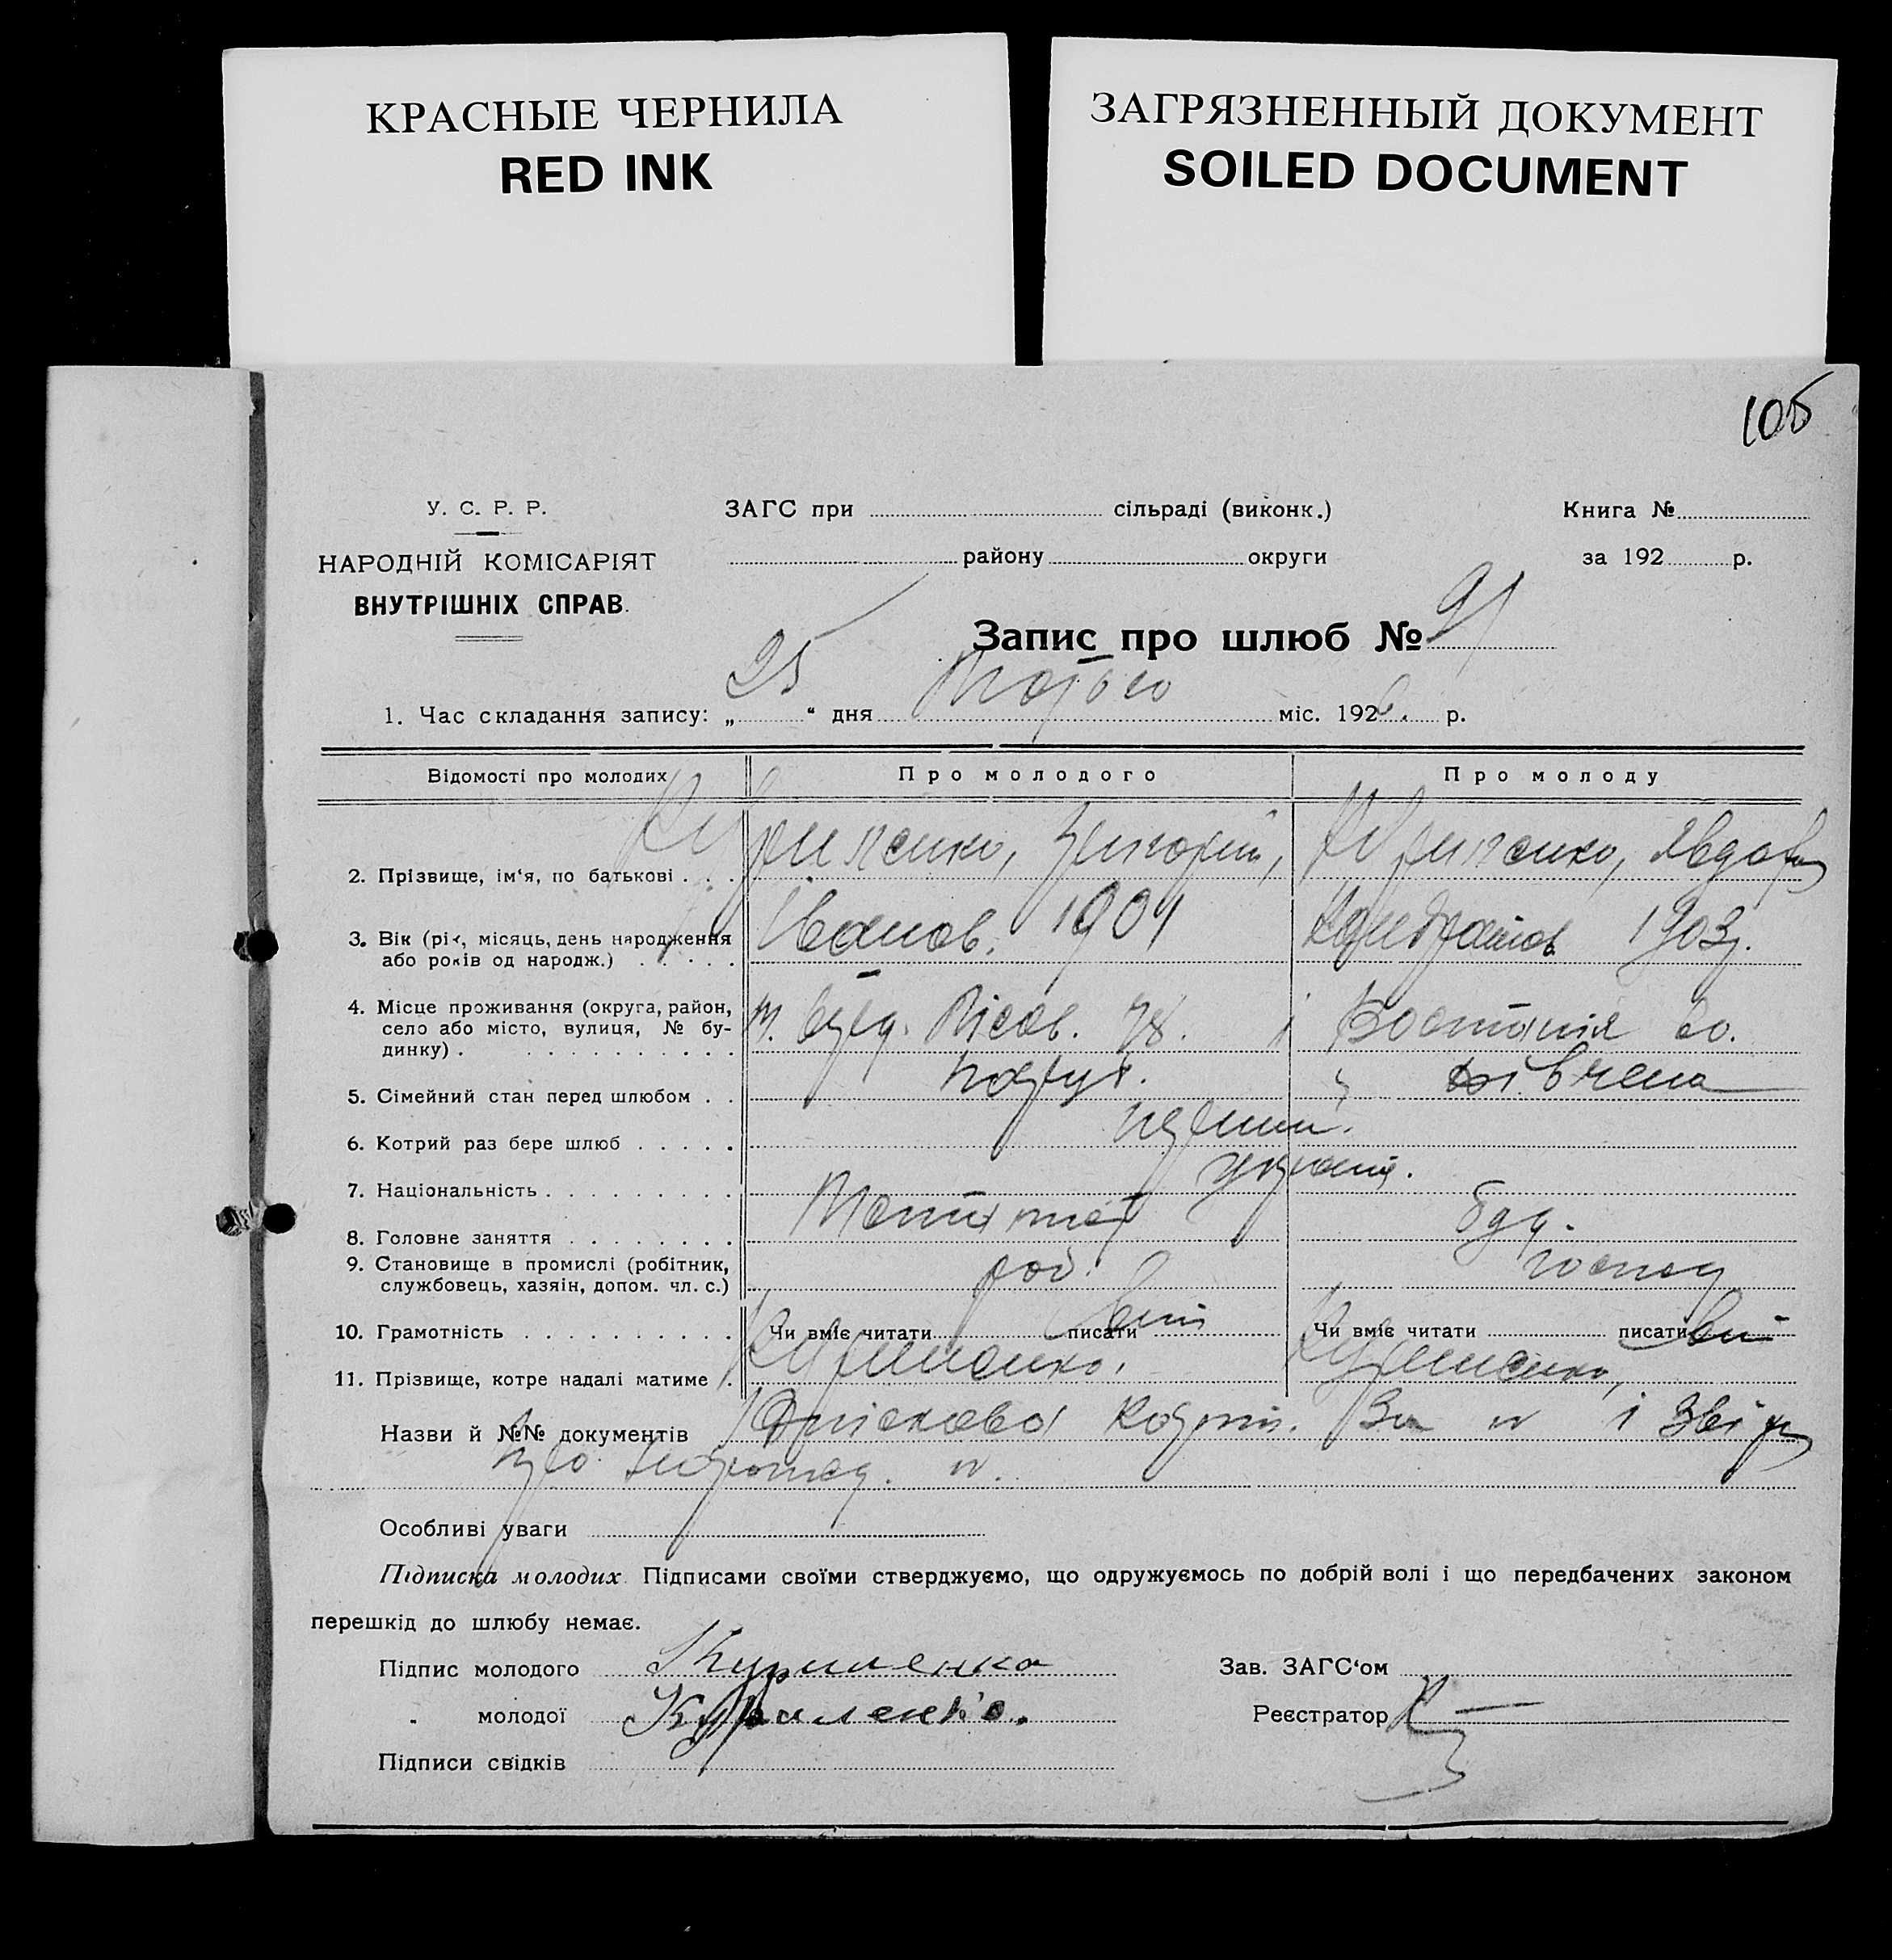 КРАСНЫЕ ЧЕРНИЛА
RED INK
ЗАГРЯЗНЕННЫЙ ДОКУМЕНТ
SOILED DOCUMENT
105
У. С. Р. Р.
НАРОДНІЙ КОМІСАРІЯТ
ВНУТРІШНІХ СПРАВ.
ЗАГС при сільраді (виконк.)
району округи
Книга №
за 192 р.
Запис про шлюб № 91
1. Час складання запису: „25“ дня міс. 1926. р.
Відомості про молодих
Про молодого
Про молоду
2. Прізвище, ім‘я, по батькові . . . Куриленко, Григорий, Куриленко, Явдоха
3. Вік (рік, місяць, день народження Іванов. 1901 Кондратов 1903
або років од народж.) . . . . .
4. Місце проживання (округа, район,
село або місто, вулиця, № бу-
динку) . . . . . . . . . . .
5. Сімейний стан перед шлюбом . . парубк. дівчена
6. Котрий раз бере шлюб . . . . . перший.
7. Національність . . . . . . . . . україн.
8. Головне заняття . . . . . . . .
9. Становище в промислі (робітник, роб.
службовець, хазяін, допом. чл. с.)
10. Грамотність . . . . . . . . . . Чи вміє читати писати вміє Чи вміє читати писати вміє
11. Прізвище, котре надалі матиме . Куриленко. Куриленко,
Назви й №№ документів За № і
№.
Особливі уваги
Підписка молодих. Підписами своїми стверджуємо, що одружуємось по добрій волі і що передбачених законом
перешкід до шлюбу немає.
Підпис молодого Куриленко
Зав. ЗАГС‘ом
„ молодої Куриленко.
Реєстратор
Підписи свідків